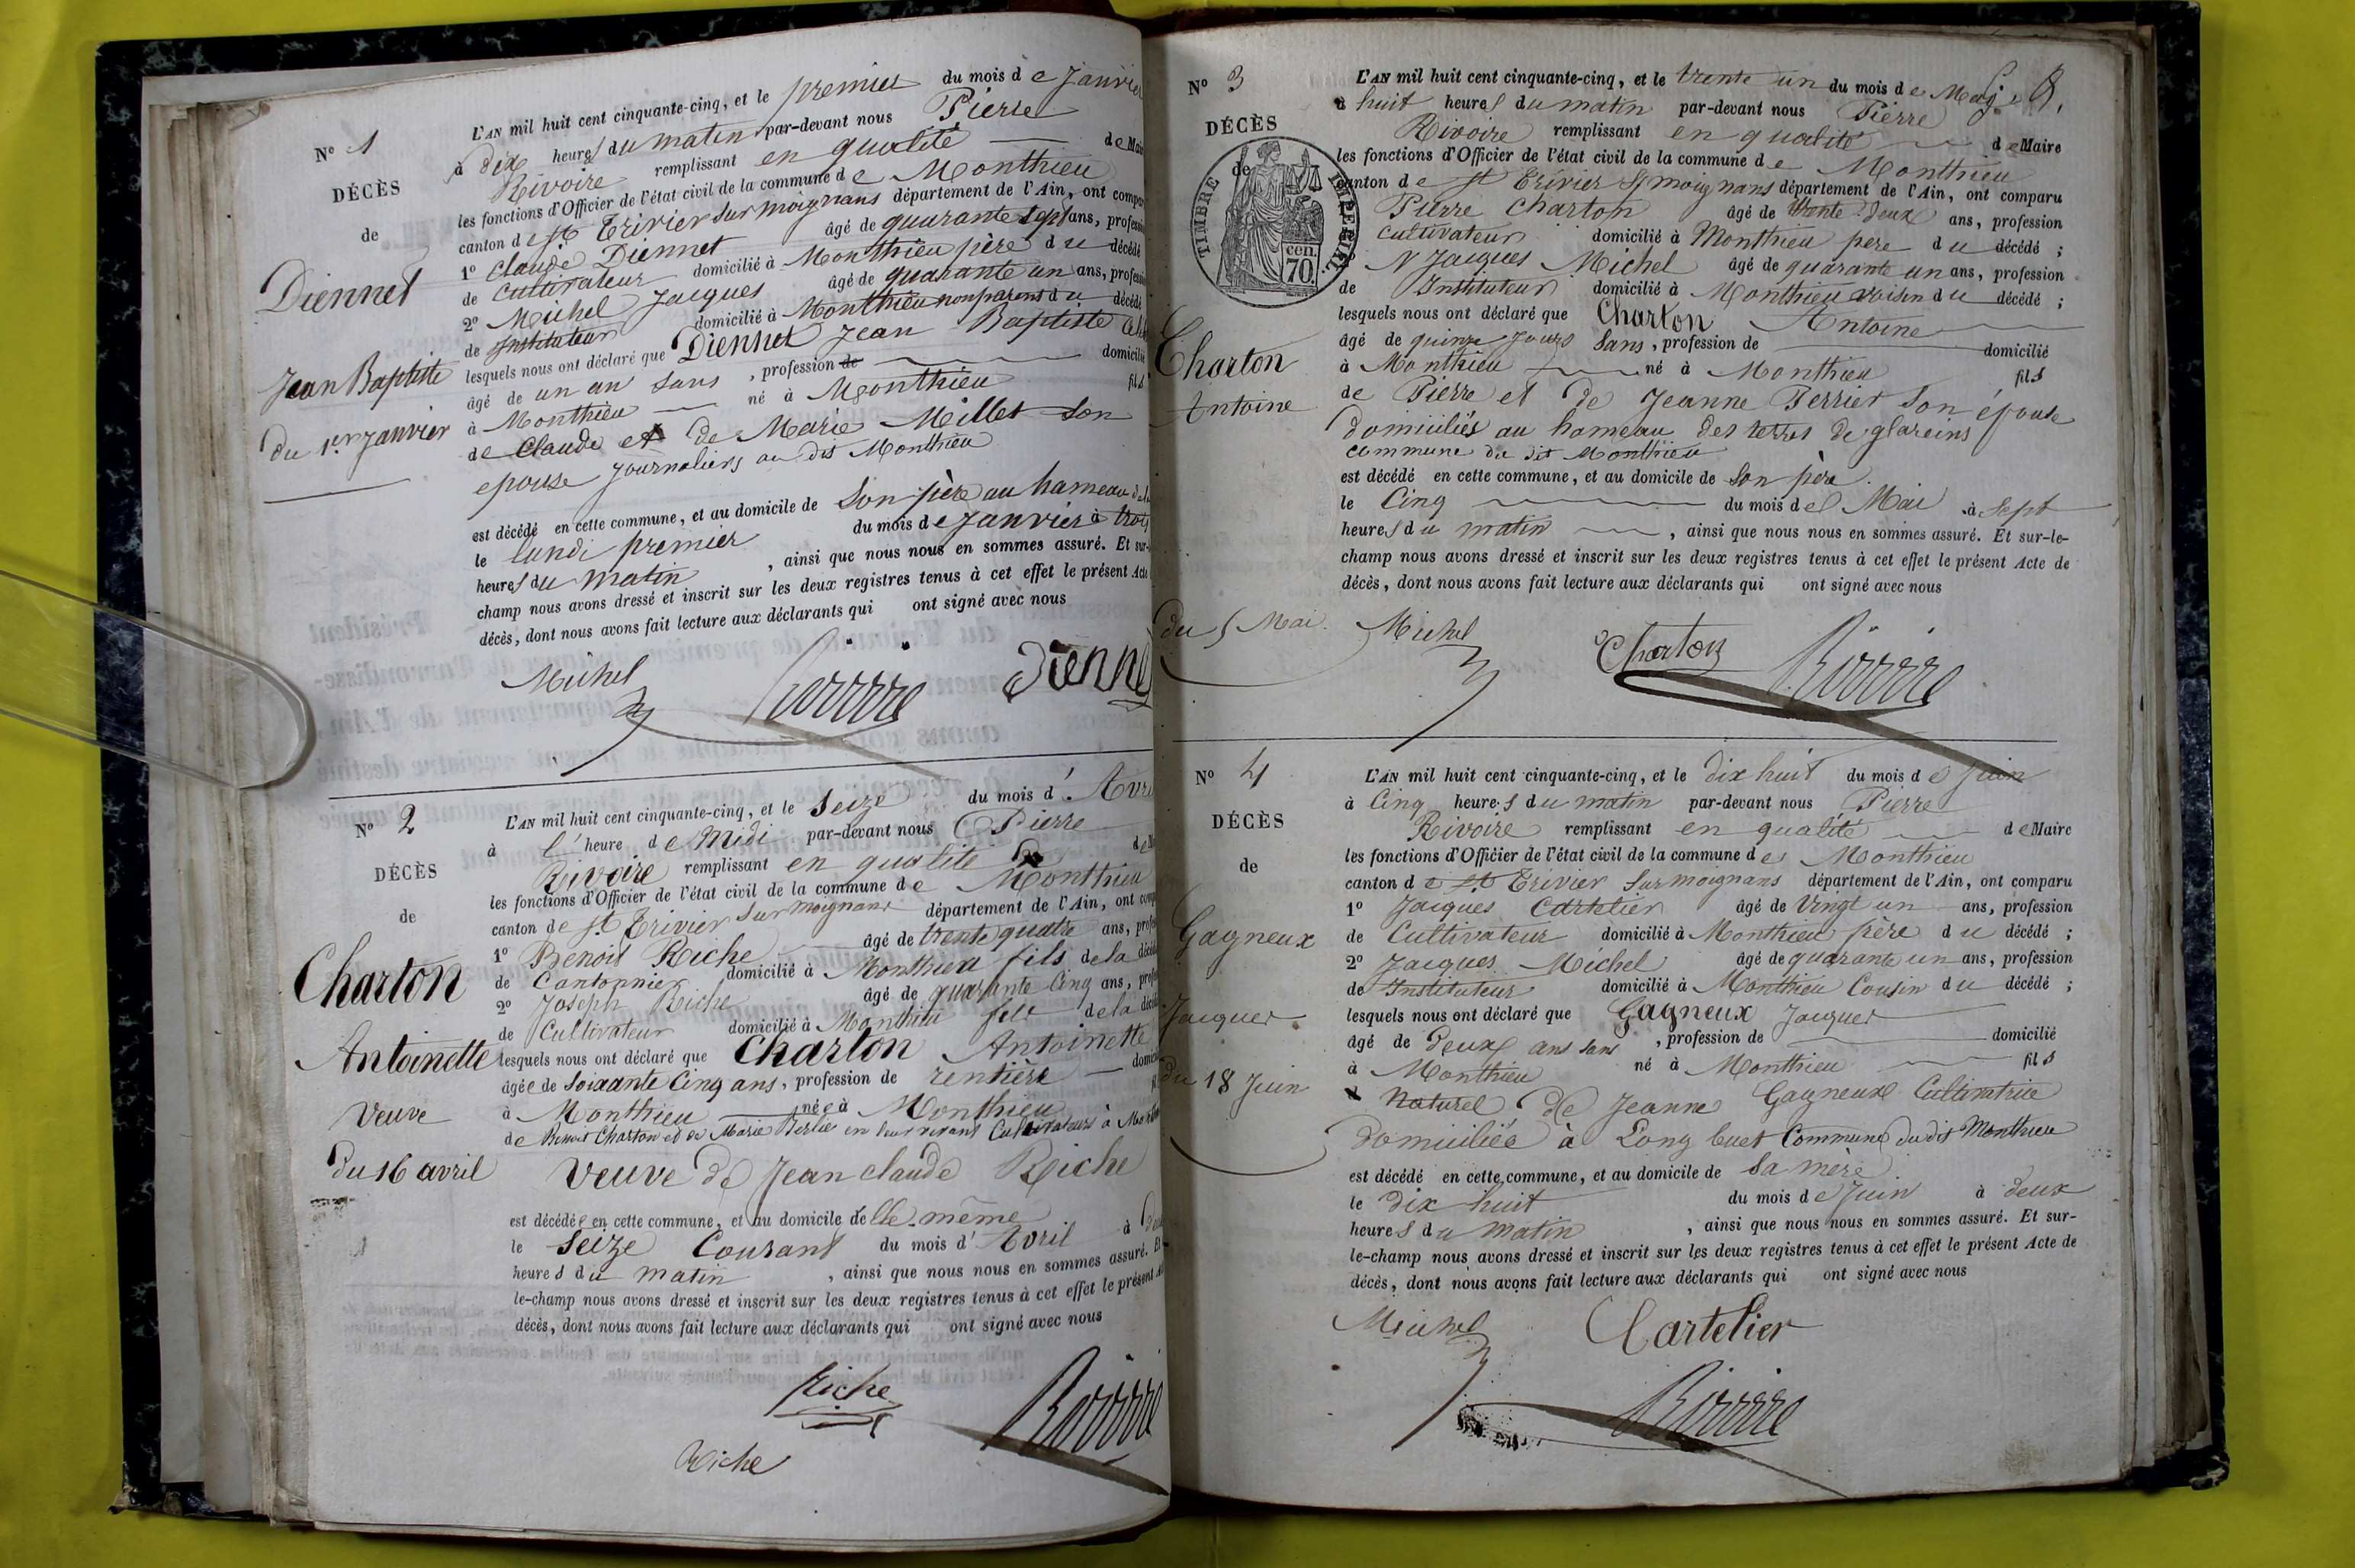 N° 1
DÉCÈS
de
Diennet
Jean Baptiste
du 1er Janvier
L'AN mil huit cent cinquante-cinq, et le premier du mois de Janvier
à dix heures du matin par-devant nous Pierre
Rivoire remplissant en qualité de Maire
les fonctions d'Officier de l'état civil de la commune de Monthieu
canton de St Trivier sur moignans département de l'Ain, ont comparu
1° Claude Diennet âgé de quarante sept ans, profession
de Cultivateur domicilié à Monthieu père du décédé
2° Michel Jacques âgé de quarante un ans, profession
de Instituteur domicilié à Monthieu non parent du décédé
lesquels nous ont déclaré que Diennet Jean Baptiste
âgé de un an sans , profession de domicilié
à Monthieu né à Monthieu fils
de Claude et de Marie Millet son
epouse Journaliers au dit Monthieu
est décédé en cette commune, et au domicile de Son père au hameau
le lundi premier du mois de Janvier à trois
heures du matin , ainsi que nous nous en sommes assuré. Et sur-
champ nous avons dressé et inscrit sur les deux registres tenus à cet effet le présent Acte
décès, dont nous avons fait lecture aux déclarants qui ont signé avec nous
Michel Rivoire Diennet
N° 2
DÉCÈS
de
Charton
Antoinette
Veuve
du 16 avril
L'AN mil huit cent cinquante-cinq, et le Seize du mois d'Avril
à l'heure de Midi par-devant nous Pierre
Rivoire remplissant en qualité de
les fonctions d'Officier de l'état civil de la commune de Monthieu
canton de St Trivier sur moignans département de l'Ain, ont comp
1° Benoit Riche âgé de trente quatre ans, prof
de Cantonnier domicilié à Monthieu fils de la décédé
2° Joseph Riche âgé de quarante Cinq ans, prof
de Cultivateur domicilié à Monthieu fils de la décédé
lesquels nous ont déclaré que Charton Antoinette
âgée de Soixante Cinq ans, profession de rentière domici
à Monthieu née à Monthieu
de Benoit Charton et de Marie en leur vivant Cultivateurs à
Veuve de Jean claude Riche
est décédée en cette commune, et au domicile d'elle même
le Seize Courant du mois d'Avril à
heures du matin , ainsi que nous nous en sommes assuré. Et
le-champ nous avons dressé et inscrit sur les deux registres tenus à cet effet le présent
décès, dont nous avons fait lecture aux déclarants qui ont signé avec nous
Riche Rivoire
Riche
N° 3
DÉCÈS
de
TIMBRE IMPÉRIAL
cen. 70.
Charton
Antoine
du 5 Mai
L'AN mil huit cent cinquante-cinq, et le trente un du mois de
à huit heures du matin par-devant nous Pierre
Rivoire remplissant en qualité de Maire
les fonctions d'Officier de l'état civil de la commune de Monthieu
canton de St Trivier S/ moignans département de l'Ain, ont comparu
Pierre Charton âgé de trente deux ans, profession
Cultivateur domicilié à Monthieu père du décédé ;
Jacques Michel âgé de quarante un ans, profession
de Instituteur domicilié à Monthieu voisin du décédé ;
lesquels nous ont déclaré que Charton Antoine
âgé de quinze Jours Sans, profession de domicilié
à Monthieu né à Monthieu fils
de Pierre et de Jeanne Perrier Son épouse
domiciliés au hameau des terres de glareins
commune du dit Monthieu
est décédé en cette commune, et au domicile de Son père
le Cinq du mois de Mai à Sept
heures du matin , ainsi que nous nous en sommes assuré. Et sur-le-
champ nous avons dressé et inscrit sur les deux registres tenus à cet effet le présent Acte de
décès, dont nous avons fait lecture aux déclarants qui ont signé avec nous
Michel Charton Rivoire
N° 4
DÉCÈS
de
Gagneux
Jacques
du 18 Juin
L'AN mil huit cent cinquante-cinq, et le dix huit du mois de Juin
à Cinq heures du matin par-devant nous Pierre
Rivoire remplissant en qualité de Maire
les fonctions d'Officier de l'état civil de la commune de Monthieu
canton de St Trivier Sur moignans département de l'Ain, ont comparu
1° Jacques Cartelier âgé de Vingt un ans, profession
de Cultivateur domicilié à Monthieu père du décédé ;
2° Jacques Michel âgé de quarante un ans, profession
de Instituteur domicilié à Monthieu Cousin du décédé ;
lesquels nous ont déclaré que Gagneux Jacques
âgé de Deux ans sans , profession de domicilié
à Monthieu né à Monthieu fils
Naturel de Jeanne Gagneux Cultivatrice
Domiciliée à Commune du dit Monthieu
est décédé en cette commune, et au domicile de Sa mère
le dix huit du mois de Juin à deux
heures du matin , ainsi que nous nous en sommes assuré. Et sur-
le-champ nous avons dressé et inscrit sur les deux registres tenus à cet effet le présent Acte de
décès, dont nous avons fait lecture aux déclarants qui ont signé avec nous
Michel Cartelier
Rivoire